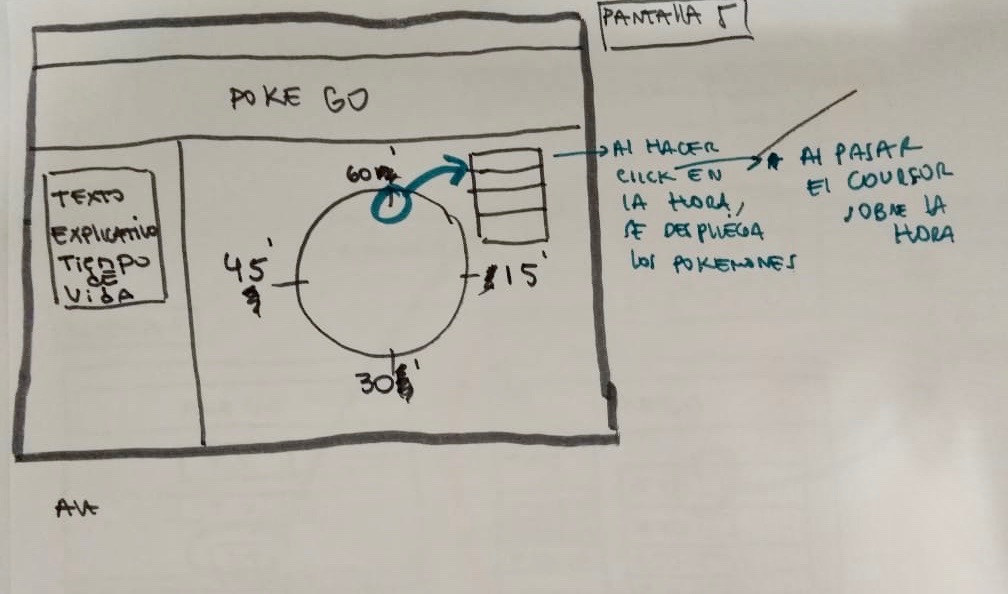 PANTALLA 5
POKE GO
60'
45'
15'
30'
TEXTO
EXPLICATIVO
TIEMPO
DE
VIDA
Al HACER
CLICK EN
LA HORA,
SE DESPLIEGA
LOS POKEMONES
* Al PASAR
El COURSOR
SOBRE LA
HORA